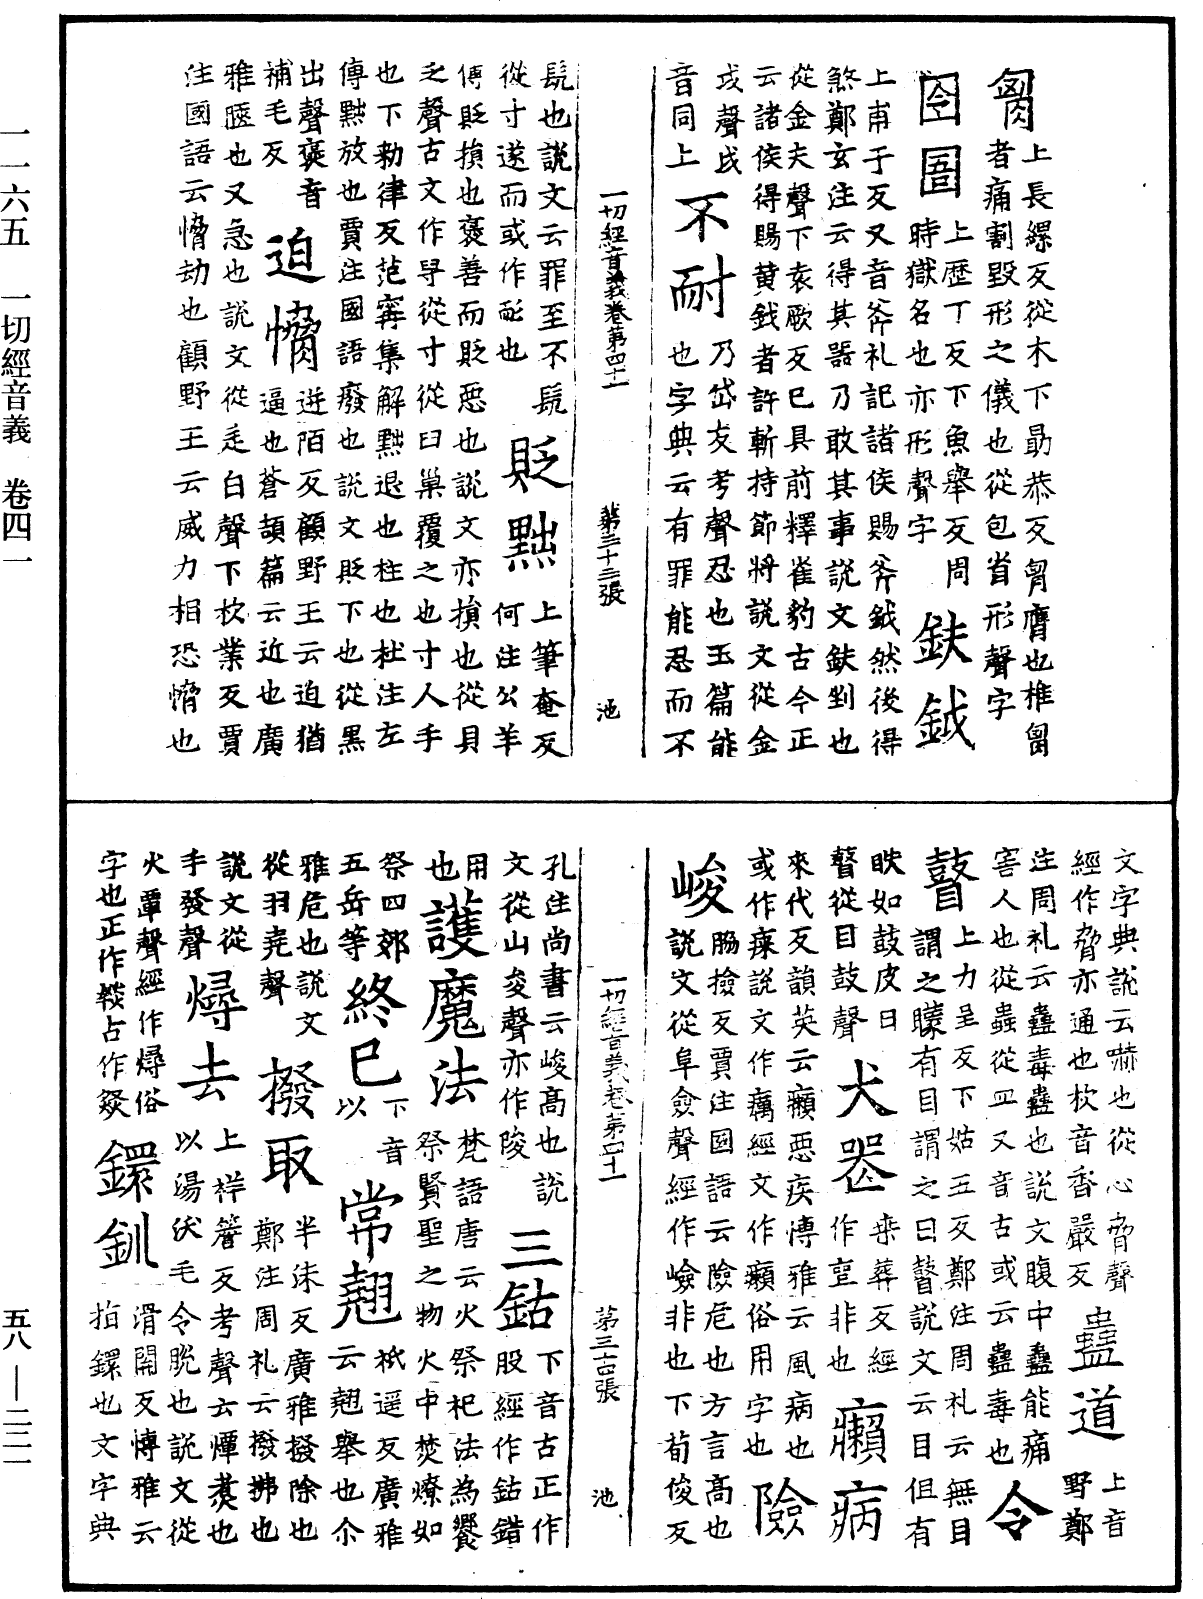 一一六五　一切經音義　卷四一
五八—二二一
胷上長縲反從木下勗恭反胷膺也椎胷
者痛割毀形之儀也從包省形聲字
囹圄上歷丁反下魚舉反周
時獄名也亦形聲字
鈇鉞
上甫于反又音斧礼記諸侯賜斧鉞然後得
煞鄭玄注云得其器乃敢其事說文鈇剉也
從金夫聲下袁厥反已具前釋崔豹古今正
云諸侯得賜黃鉞者許斬持節將說文從金
戉聲戉
音同上
不耐乃岱友考聲忍也玉篇能
也字典云有罪能忍而不
一切經音義卷第四十一　第三十三張　池
髡也說文云罪至不髡
從寸遂而或作耏也
貶黜上筆奄反
何注公羊
傳貶損也褒善而貶惡也說文亦損也從貝
乏聲古文作㝵從寸從臼巢覆之也寸人手
也下勅律反范甯集解黜退也柱也杜注左
傳黜放也賈注國語廢也說文貶下也從黑
出聲褒音
補毛反
迫愶逬陌反顧野王云迫猶
逼也蒼頡篇云近也廣
雅陿也又急也說文從辵白聲下杴業反賈
注國語云愶劫也顧野王云威力相恐愶也
文字典說云嚇也從心脅聲
經作脅亦通也杴音香嚴反
蠱道上音
野鄭
注周礼云蠱毒蠱也說文腹中蠱能痛
害人也從蟲從皿又音古或云蠱毒也
令
瞽上力呈反下姑五反鄭注周札云無目
謂之矇有目謂之曰瞽說文云目但有
眹如鼓皮曰
瞽從目鼓聲
犬器㐮葬反經
作䇺非也
癩病
來代反韻英云癩惡疾博雅云風病也
或作癘說文作癘經文作癩俗用字也
險
峻脇撿反賈注國語云險危也方言高也
說文從阜僉聲經作嶮非也下荀俊反
一切經音義卷第四十一　第三十四張　池
孔注尚書云峻高也說
文從山夋聲亦作陖
三鈷下音古正作
股經作鈷錯
用
也
護魔法梵語唐云火祭祀法為饗
祭賢聖之物火中焚燎如
祭四郊
五岳等
終巳下音
以
常翹祇遥反廣雅
云翹舉也尒
雅危也說文
從羽堯聲
撥取半沬反廣雅撥除也
鄭注周礼云撥拂也
說文從
手發聲
燖去上祥簷反考聲云燂煑也
以湯沃毛令脫也說文從
火覃聲經作燖俗
字也正作㷟占作㷟
鐶釧滑關反博雅云
指鐶也文字典